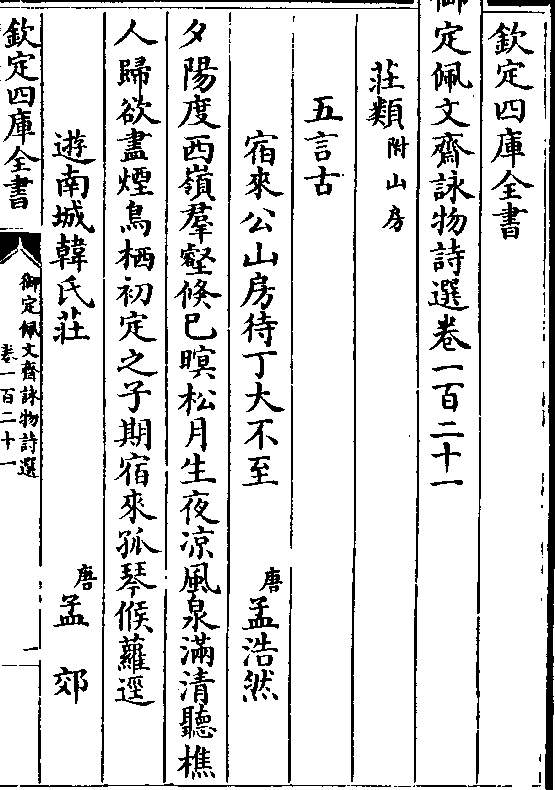 欽定四庫全書
御定佩文齋詠物詩選卷一百二十一
莊類附山房
五言古
宿來公山房待丁大不至 唐孟浩然
夕陽度西嶺羣壑倐已暝松月生夜凉風泉滿清聽樵
人歸欲盡煙鳥栖初定之子期宿來孤琴候蘿逕
遊南城韓氏莊 唐孟郊
欽定四庫全書
御定佩文齋詠物詩選
卷一百二十一
一